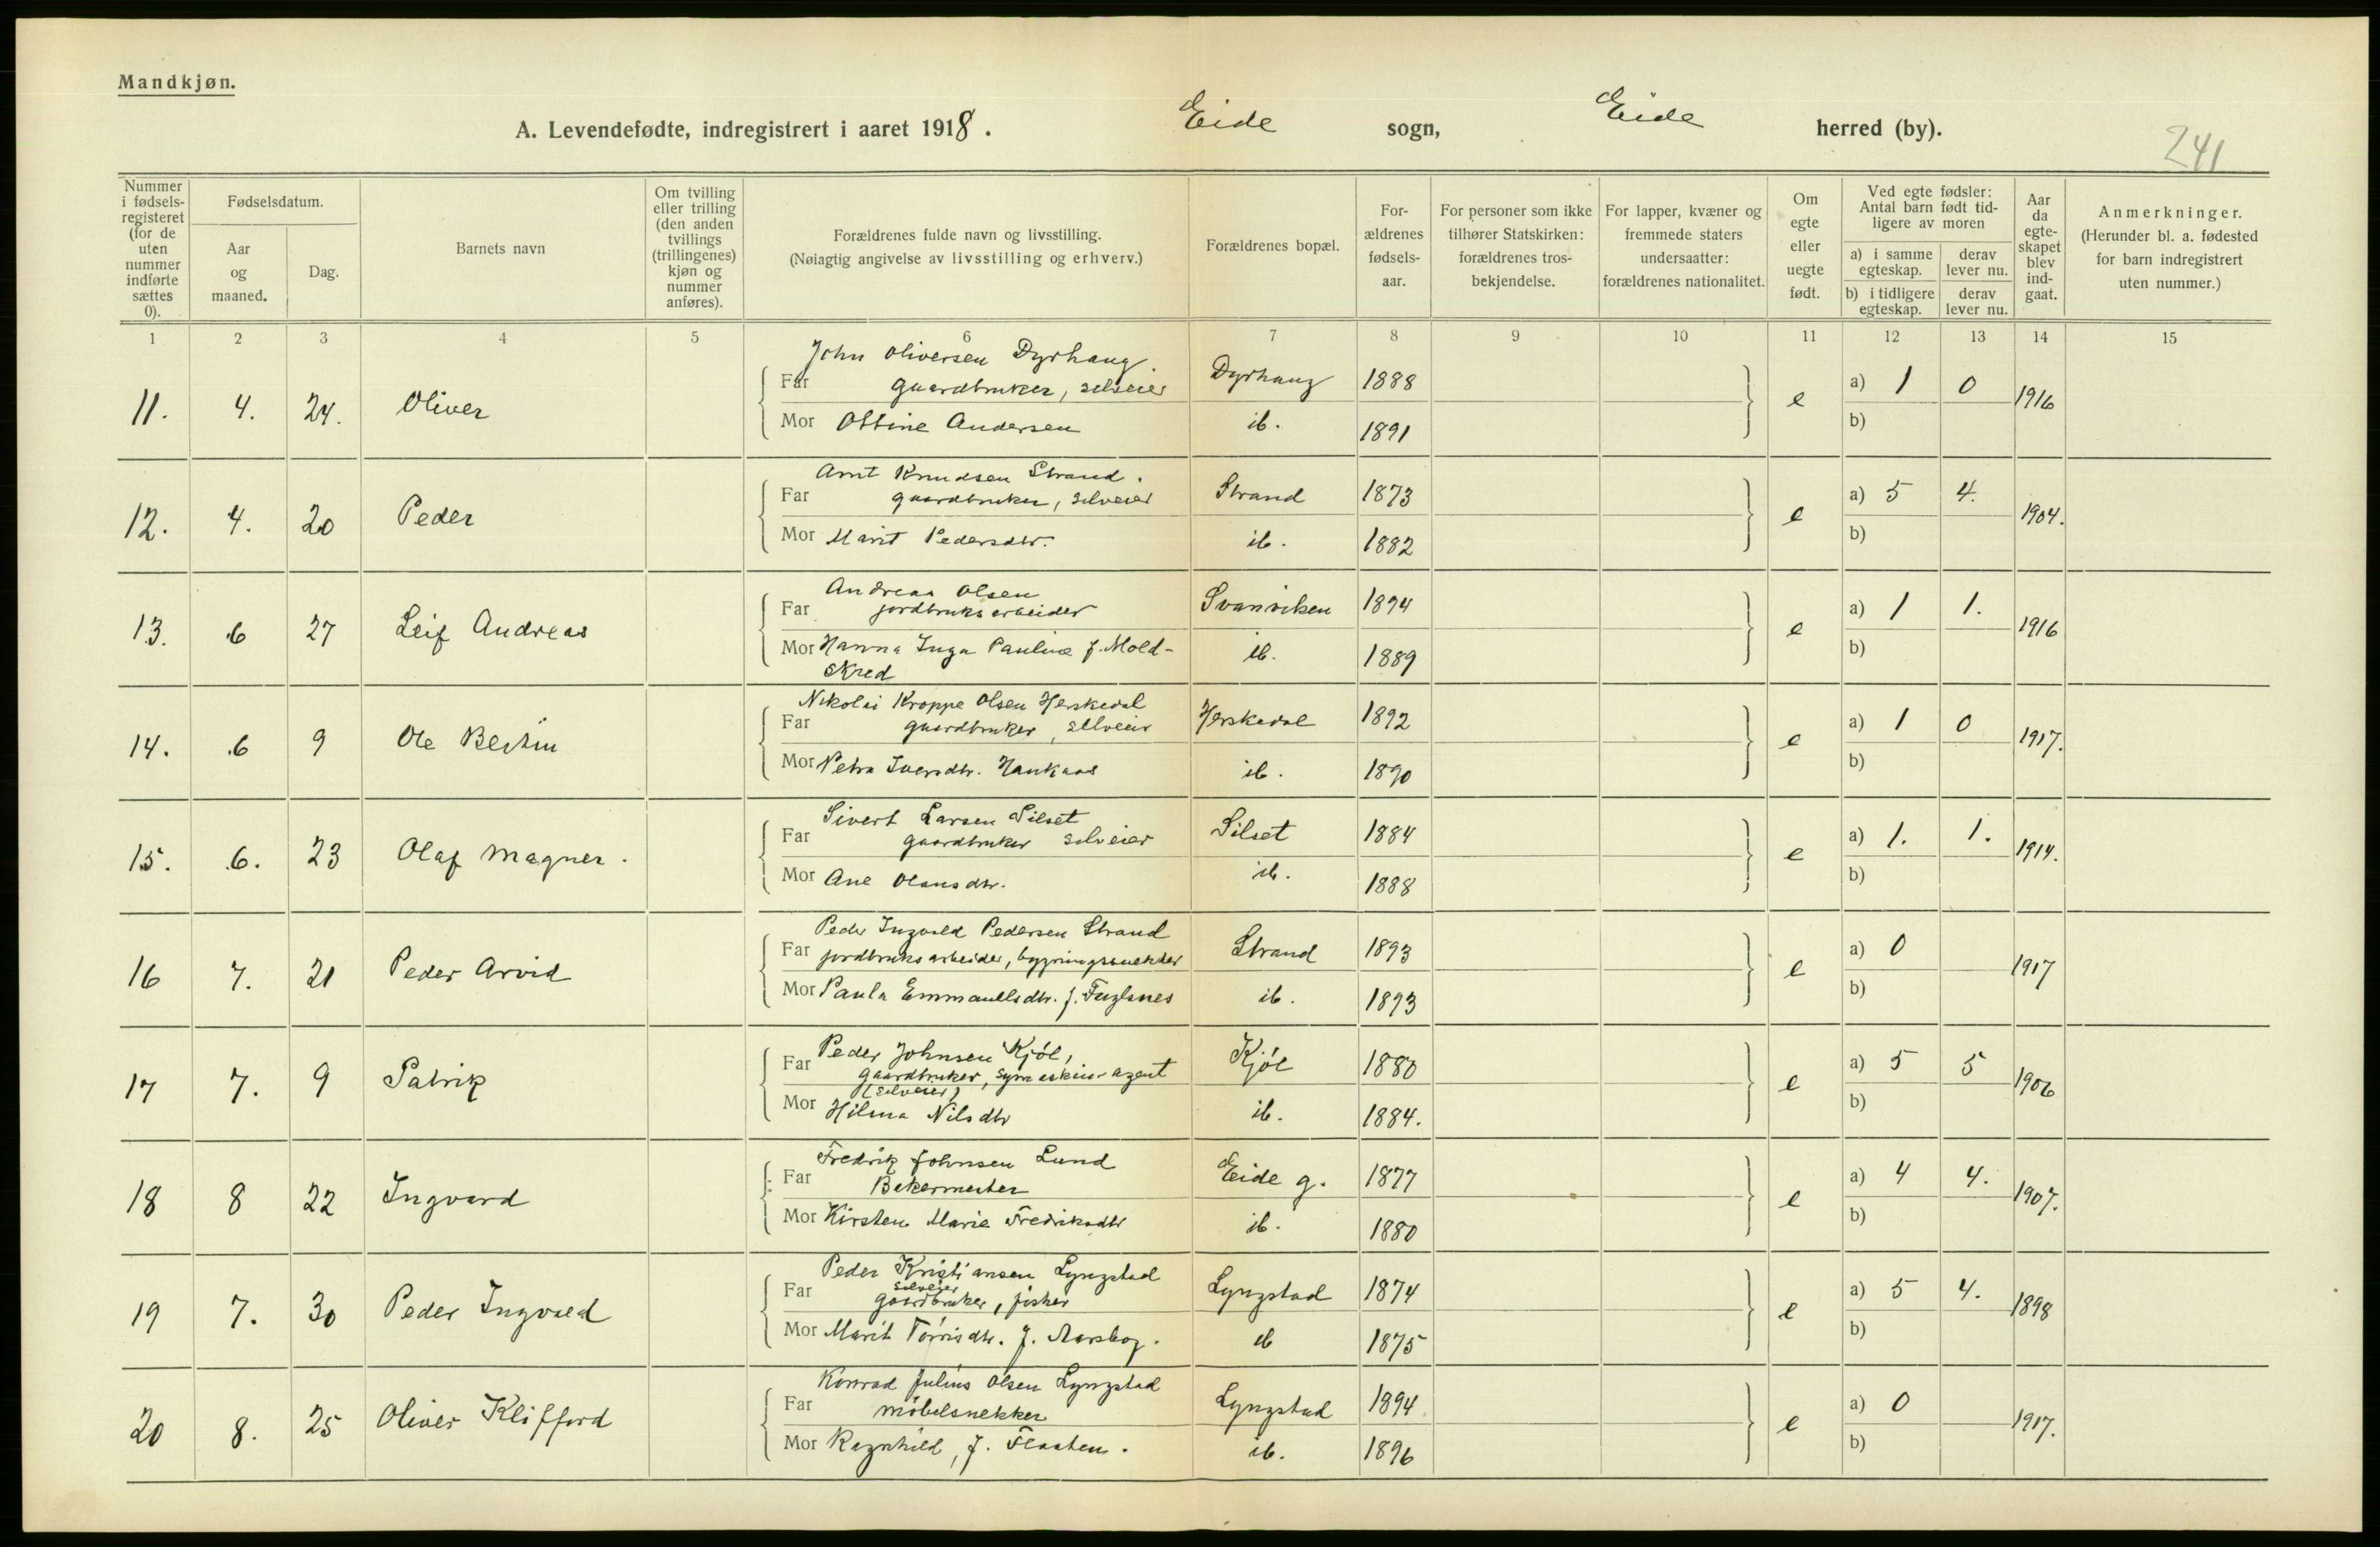 Mandkjøn.
A. Levendefødte, indregistrert i aaret 1918. Eide sogn, Eide herred (by).
241
Nummer i fødsels-registeret (for de uten nummer indførte sættes 0).
Fødselsdatum.
Aar og maaned.
Dag.
Barnets navn
Om tvilling eller trilling (den anden tvillings (trillingenes) kjøn og nummer anføres).
Forældrenes fulde navn og livsstilling.
(Nøiagtig angivelse av livsstilling og erhverv.)
Forældrenes bopæl.
For-ældrenes fødsels-aar.
For personer som ikke tilhører Statskirken: forældrenes tros-bekjendelse.
For lapper, kvæner og fremmede staters undersaatter: forældrenes nationalitet.
Om egte eller uegte født.
Ved egte fødsler: Antal barn født tid-ligere av moren
a) i samme egteskap. derav lever nu.
b) i tidligere egteskap. derav lever nu.
Aar da egte-skapet blev ind-gaat.
Anmerkninger.
(Herunder bl. a. fødested for barn indregistrert uten nummer.)
1 2 3 4 5 6 7 8 9 10 11 12 13 14 15
John Oliversen Dyrhaug
11. 4. 24. Oliver Far gaardbruker, selveier Dyrhaug 1888 e a) 1 0 1916
Mor Ottine Andersen ib. 1891 b)
Arnt Knudsen Strand.
12. 4. 20 Peder Far gaardbruker, selveier Strand 1873 e a) 5 4. 1904.
Mor Marit Pedersdtr. ib. 1882 b)
Andreas Olsen
13. 6 27 Leif Andreas Far jordbruksarbeider Svanviken 1894 e a) 1 1. 1916
Mor Hanna Inga Pauline f. Mold-
skred ib. 1889 b)
Nikolai Kroppe Olsen Herskedal
14. 6 9 Ole Bertin Far gaardbruker, selveier Herskedal 1892 e a) 1 0 1917.
Mor Petra Iversdtr. Haukaas ib. 1890 b)
Sivert Larsen Silset
15. 6. 23 Olaf Magner. Far gaardbruker selveier Silset 1884 e a) 1. 1. 1914.
Mor Ane Olausdtr. ib. 1888 b)
Peder Ingvald Pedersen Strand
16 7. 21 Peder Arvid Far jordbruksarbeider, bygningssnekker Strand 1893 e a) 0 1917
Mor Paula Emmanuelsdtr. f. Fuglsnes ib. 1893 b)
Peder Johnsen Kjöl,
17 7. 9 Patrik Far gaardbruker, symaskin-agent Kjöl 1880 e a) 5 5 1906
(selveier)
Mor Hilma Nilsdtr ib. 1884. b)
Fredrik Johnsen Lund
18 8 22 Ingvard Far Bakermester Eide g. 1877 e a) 4 4. 1907.
Mor Kirsten Marie Fredriksdtr ib. 1880 b)
Peder Kristiansen Lyngstad
selveier
19 7. 30 Peder Ingvald Far gaardbruker, fisker Lyngstad 1874 e a) 5 4. 1898
Mor Marit Torrisdtr. f. ib 1875 b)
Konrad Julius Olsen Lyngstad
20 8. 25 Oliver Klifford Far möbelsnekker Lyngstad 1894 e a) 0 1917.
Mor Ragnhild, f. Flaaten. ib. 1896 b)